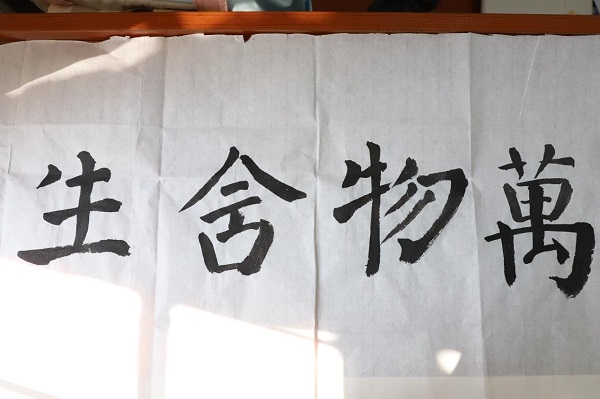 萬物含生